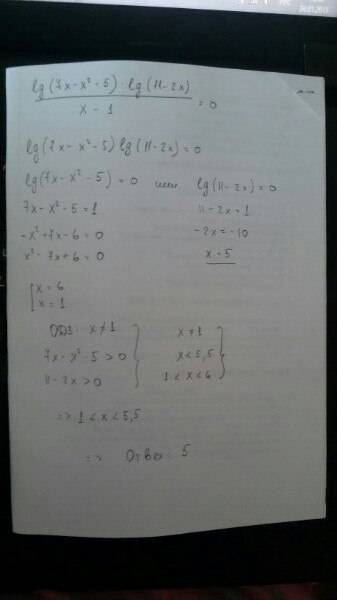 lg(7x-x²-5)·lg(11-2x)
x-1
=0
lg(7x-x²-5)lg(11-2x)=0
lg(7x-x²-5)=0 или lg(11-2x)=0
7x-x²-5=1 11-2x=1
-x²+7x-6=0 -2x=-10
x²-7x+6=0 x=5
[x=6
x=1
ОДЗ: x≠1 } x≠1
7x-x²-5>0 x<5,5
11-2x>0 1<x<6 }
=>1<x<5,5
=> Ответ: 5